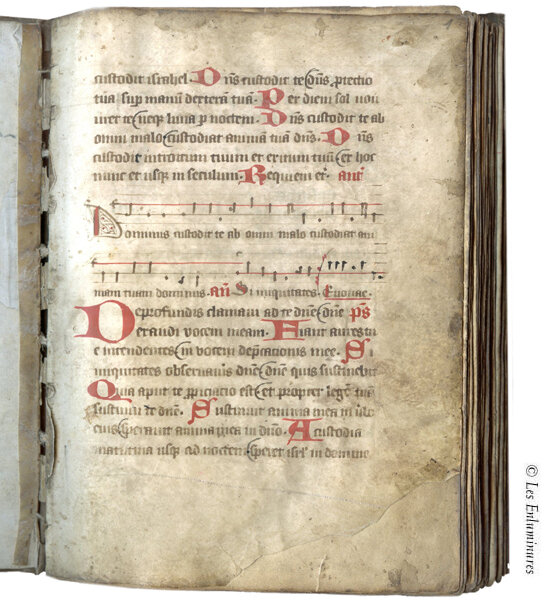 custodit israhel. Dns custodit te dns ꝓtectio
tua suꝑ manū dexterā tuā. Per diem sol non
uret te neqȝ luna ꝑ noctem. Dns custodit te ab
omni malo custodiat animā tuā dns. Dns
custodit introitum tuum et exitum tuū ex hoc
nunc et usqȝ in seculum. Requiem et̾. ant̾
Dominus custodit te ab omni malo custodiat ani
mam tuam dominus. an̄ Si iniquitates. Euouae.
De profundis clamaui ad te dne dne p̄s
exaudi vocem meam. Fiant aures tu
e intendentes in vocem dep̄cationis mee. Si
iniquitates obseruaueris dne dne quis sustinebit
Quia aput te ꝓpiciacio est et propter legē tuā
sustinui te dne. Sustinuit anima mea in ūbo
eius sperauit anima mea in dno. A custodia
matutina usqȝ ad noctem speret isrl̾ in domino
© Les Enluminures